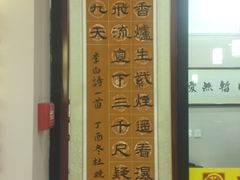 香爐生紫煙遙看瀑
飛流直下三千尺疑
九天
李白詩一首 丁酉冬杜